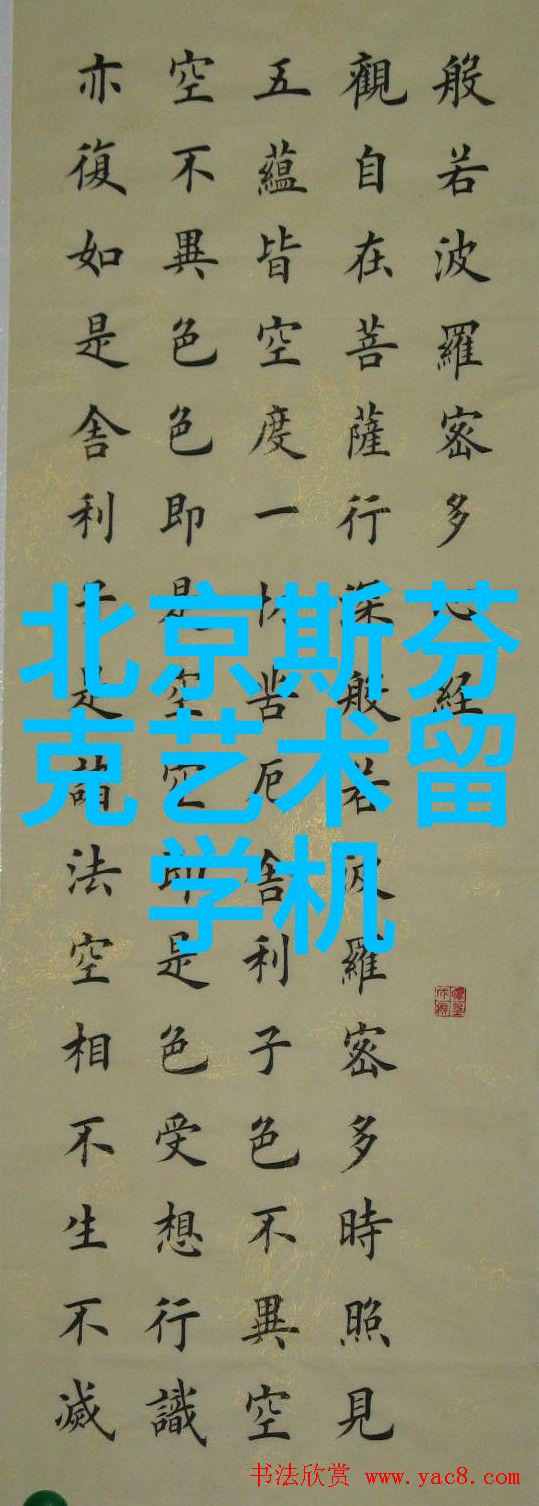 般若波羅密多心経
觀自在菩薩行深般若波羅密多時照見
五蘊皆空度一切苦厄舍利子色不異空
空不異色色即是空空即是色受想行識
亦復如是舍利子是諸法空相不生不滅
北京斯芬
克艺术留
学机
书法欣赏 www.yac8.com